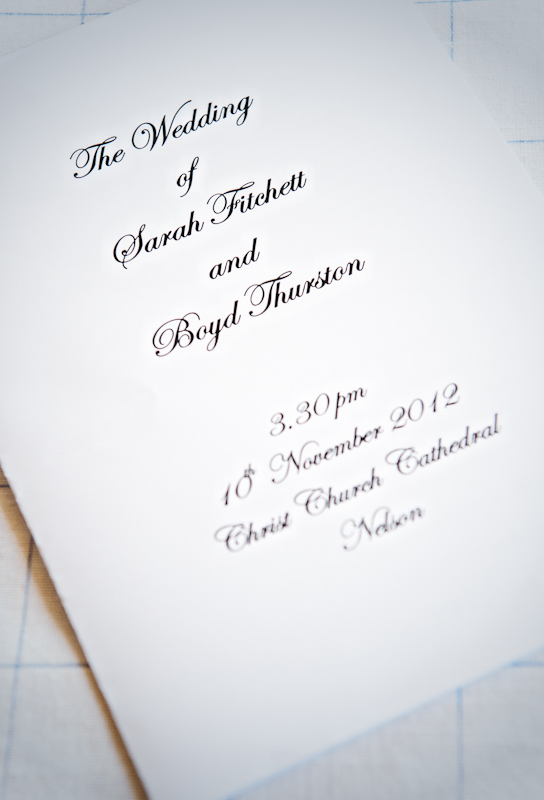 The Wedding
of
Sarah Fitchett
and
Boyd Thurston
3.30pm
10th November 2012
Christ Church Cathedral
Nelson